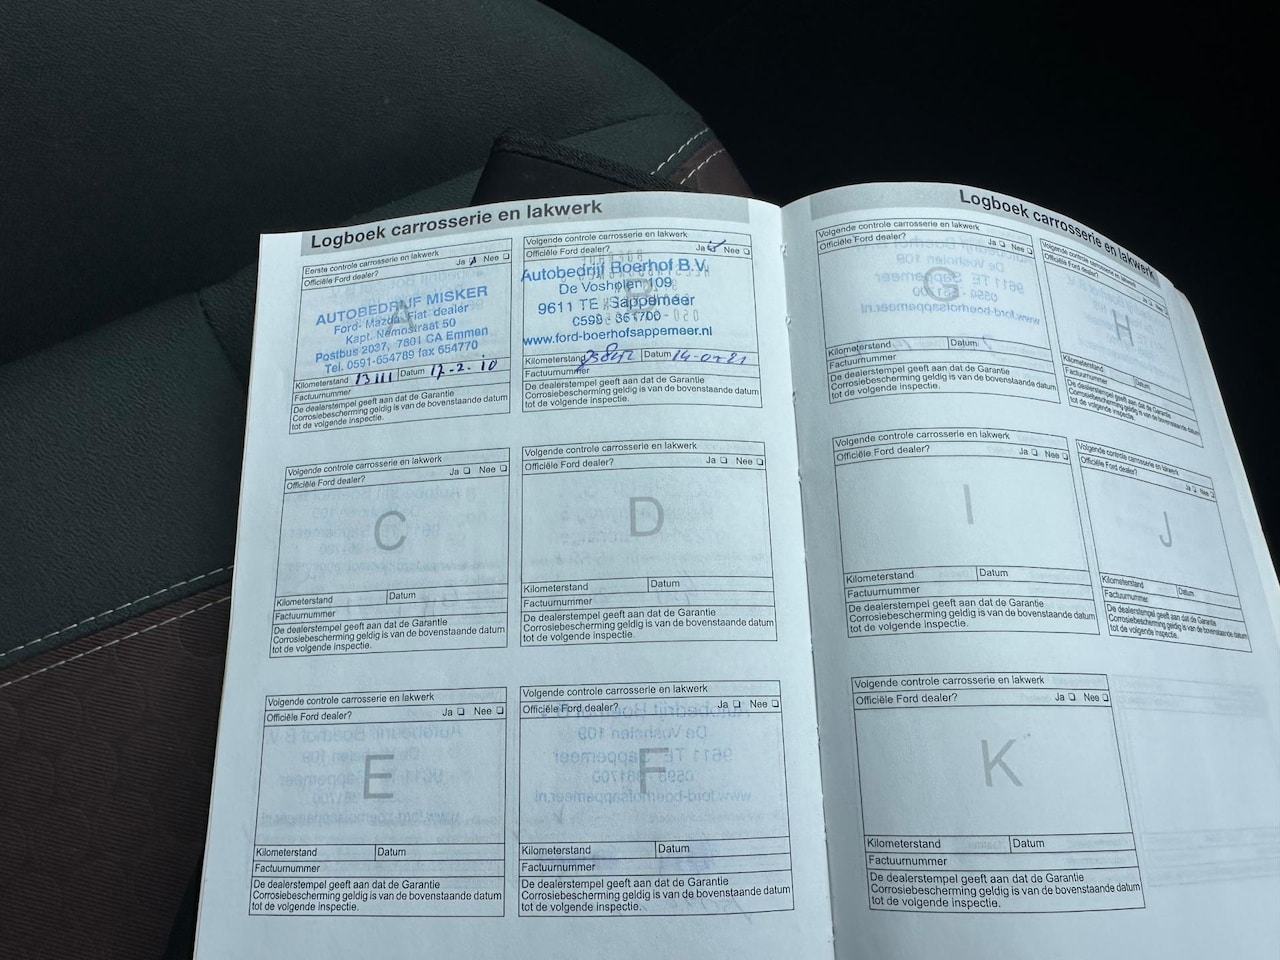 Logboek carrosserie en lakwerk
Eerste controle carrosserie en lakwerk
Officiële Ford dealer? Ja Nee
A
AUTOBEDRIJF MISKER
Ford- Mazda- Fiat dealer
Kapt. Nemostraat 50
Postbus 2037, 7801 CA Emmen
Tel. 0591-654789 fax 654770
Kilometerstand 13111 Datum 17-2-10
Factuurnummer
De dealerstempel geeft aan dat de Garantie
Corrosiebescherming geldig is van de bovenstaande datum
tot de volgende inspectie.
Volgende controle carrosserie en lakwerk
Officiële Ford dealer? Ja Nee
Autobedrijf Boerhof B.V.
De Vosholen 109
9611 TE Sappemeer
0598 - 361700
www.ford-boerhofsappemeer.nl
Kilometerstand Datum
Factuurnummer
De dealerstempel geeft aan dat de Garantie
Corrosiebescherming geldig is van de bovenstaande datum
tot de volgende inspectie.
Volgende controle carrosserie en lakwerk
Officiële Ford dealer? Ja Nee
C
Kilometerstand Datum
Factuurnummer
De dealerstempel geeft aan dat de Garantie
Corrosiebescherming geldig is van de bovenstaande datum
tot de volgende inspectie.
Volgende controle carrosserie en lakwerk
Officiële Ford dealer? Ja Nee
D
Kilometerstand Datum
Factuurnummer
De dealerstempel geeft aan dat de Garantie
Corrosiebescherming geldig is van de bovenstaande datum
tot de volgende inspectie.
Volgende controle carrosserie en lakwerk
Officiële Ford dealer? Ja Nee
E
Kilometerstand Datum
Factuurnummer
De dealerstempel geeft aan dat de Garantie
Corrosiebescherming geldig is van de bovenstaande datum
tot de volgende inspectie.
Volgende controle carrosserie en lakwerk
Officiële Ford dealer? Ja Nee
F
Kilometerstand Datum
Factuurnummer
De dealerstempel geeft aan dat de Garantie
Corrosiebescherming geldig is van de bovenstaande datum
tot de volgende inspectie.
Logboek carrosserie en lakwerk
Volgende controle carrosserie en lakwerk
Officiële Ford dealer? Ja Nee
G
Kilometerstand Datum
Factuurnummer
De dealerstempel geeft aan dat de Garantie
Corrosiebescherming geldig is van de bovenstaande datum
tot de volgende inspectie.
Volgende controle carrosserie en lakwerk
Officiële Ford dealer? Ja Nee
H
Kilometerstand Datum
Factuurnummer
De dealerstempel geeft aan dat de Garantie
Corrosiebescherming geldig is van de bovenstaande datum
tot de volgende inspectie.
Volgende controle carrosserie en lakwerk
Officiële Ford dealer? Ja Nee
I
Kilometerstand Datum
Factuurnummer
De dealerstempel geeft aan dat de Garantie
Corrosiebescherming geldig is van de bovenstaande datum
tot de volgende inspectie.
Volgende controle carrosserie en lakwerk
Officiële Ford dealer? Ja Nee
J
Kilometerstand Datum
Factuurnummer
De dealerstempel geeft aan dat de Garantie
Corrosiebescherming geldig is van de bovenstaande datum
tot de volgende inspectie.
Volgende controle carrosserie en lakwerk
Officiële Ford dealer? Ja Nee
K
Kilometerstand Datum
Factuurnummer
De dealerstempel geeft aan dat de Garantie
Corrosiebescherming geldig is van de bovenstaande datum
tot de volgende inspectie.